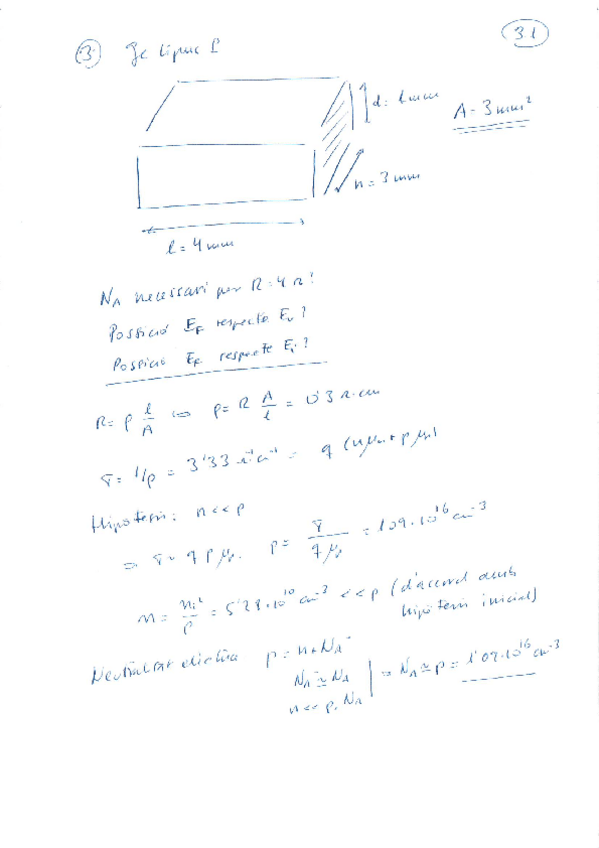 3. Ge tipus P
3.1
d = 1 mm
A = 3 mm²
h = 3 mm
l = 4 mm
N_A necessari per R = 4 Ω?
Possició E_F respecte E_v?
Possició E_F respecte E_i?
R = ρ l/A ⇔ ρ = R A/l = 0'3 Ω·cm
σ = 1/ρ = 3'33 Ω⁻¹cm⁻¹ = q (nμ_n + pμ_p)
Hipòtesi: n << p
⇒ σ ≈ q p μ_p. p = σ/(q μ_p) = 1'09·10¹⁶ cm⁻³
n = n_i²/p = 5'28·10¹⁰ cm⁻³ << p (d'acord amb
hipòtesi inicial)
Neutralitat elèctrica p = n + N_A⁻
N_A⁻ ≃ N_A
n << p, N_A
⇒ N_A ≃ p = 1'09·10¹⁶ cm⁻³